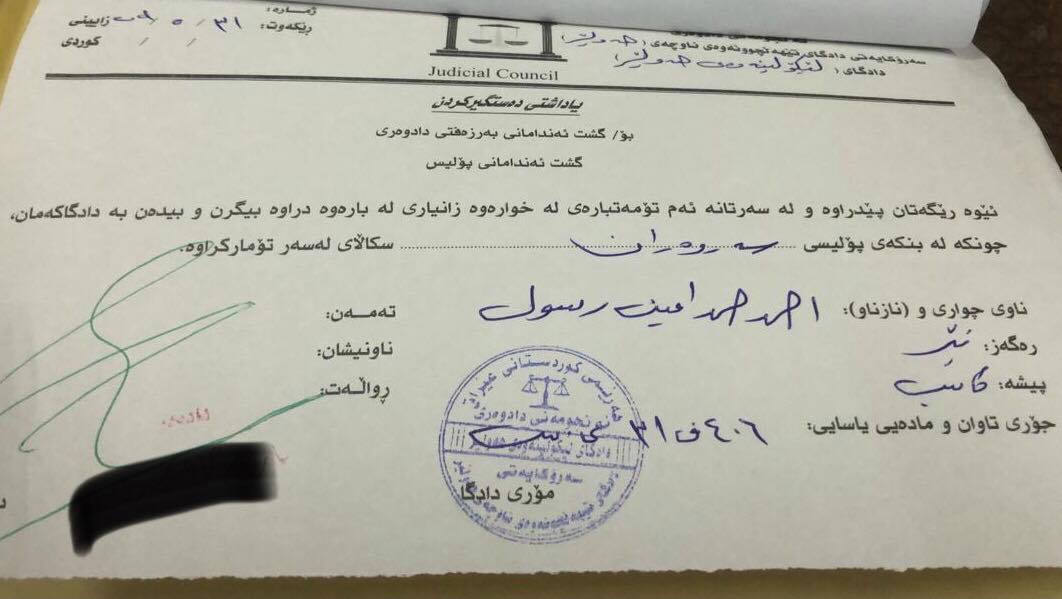 ژمارە:
ڕێکەوت: ٣١ / ٥ / زایینی
/ / کوردی
سەرۆکایەتی دادگای تێهەڵچوونەوەی ناوچەی (هەولێر)
دادگای: لێکۆڵینەوەی هەولێر
Judicial Council
یاداشتی دەستگیرکردن
بۆ/ گشت ئەندامانی بەرزەفتی دادوەری
گشت ئەندامانی پۆلیس
ئێوە ڕێگەتان پێدراوە و لە سەرتانە ئەم تۆمەتبارەی لە خوارەوە زانیاری لە بارەوە دراوە بیگرن و بیدەن بە دادگاکەمان،
چونکە لە بنکەی پۆلیسی سەروەران سکاڵای لەسەر تۆمارکراوە.
ناوی چواری و (نازناو): احمد حمدامین رسول
تەمەن:
ڕەگەز: نێر
ناونیشان:
پیشە: کاسب
ڕواڵەت:
جۆری تاوان و مادەیی یاسایی: ٤٠٦ ق ٣١
هەرێمی کوردستانی عیراق
ئەنجومەنی دادوەری
دادگای لێکۆڵینەوەی هەولێر
سەرۆکایەتی
دادگای تێهەڵچوونەوەی ناوچەی هەولێر
مۆری دادگا
دادوەر